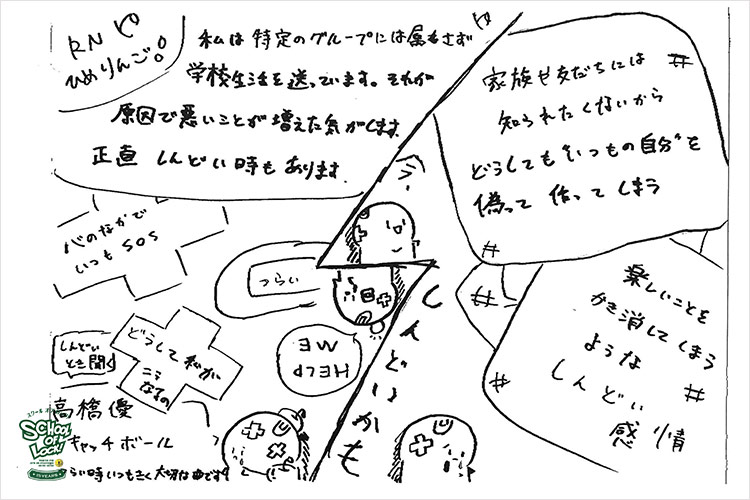 RN
ひめりんご。
私は特定のグループには属もさず
学校生活を送っています。それが
原因で悪いことが増えた気がします
正直 しんどい時もあります.
家族や友だちには
知られたくないから
どうしても“いつもの自分”を
偽って 作って しまう
心のなかで
いつも SOS
つらい
HELP
ME
しんどいかも
楽しいことを
かき消してしまう
ような
しんどい
感情
どうして私が
こう
なるの
しんどい
とき聞く
高橋優
キャッチボール
らい時いつもきく大切な曲です!
SCHOOL
OF
LOCK!